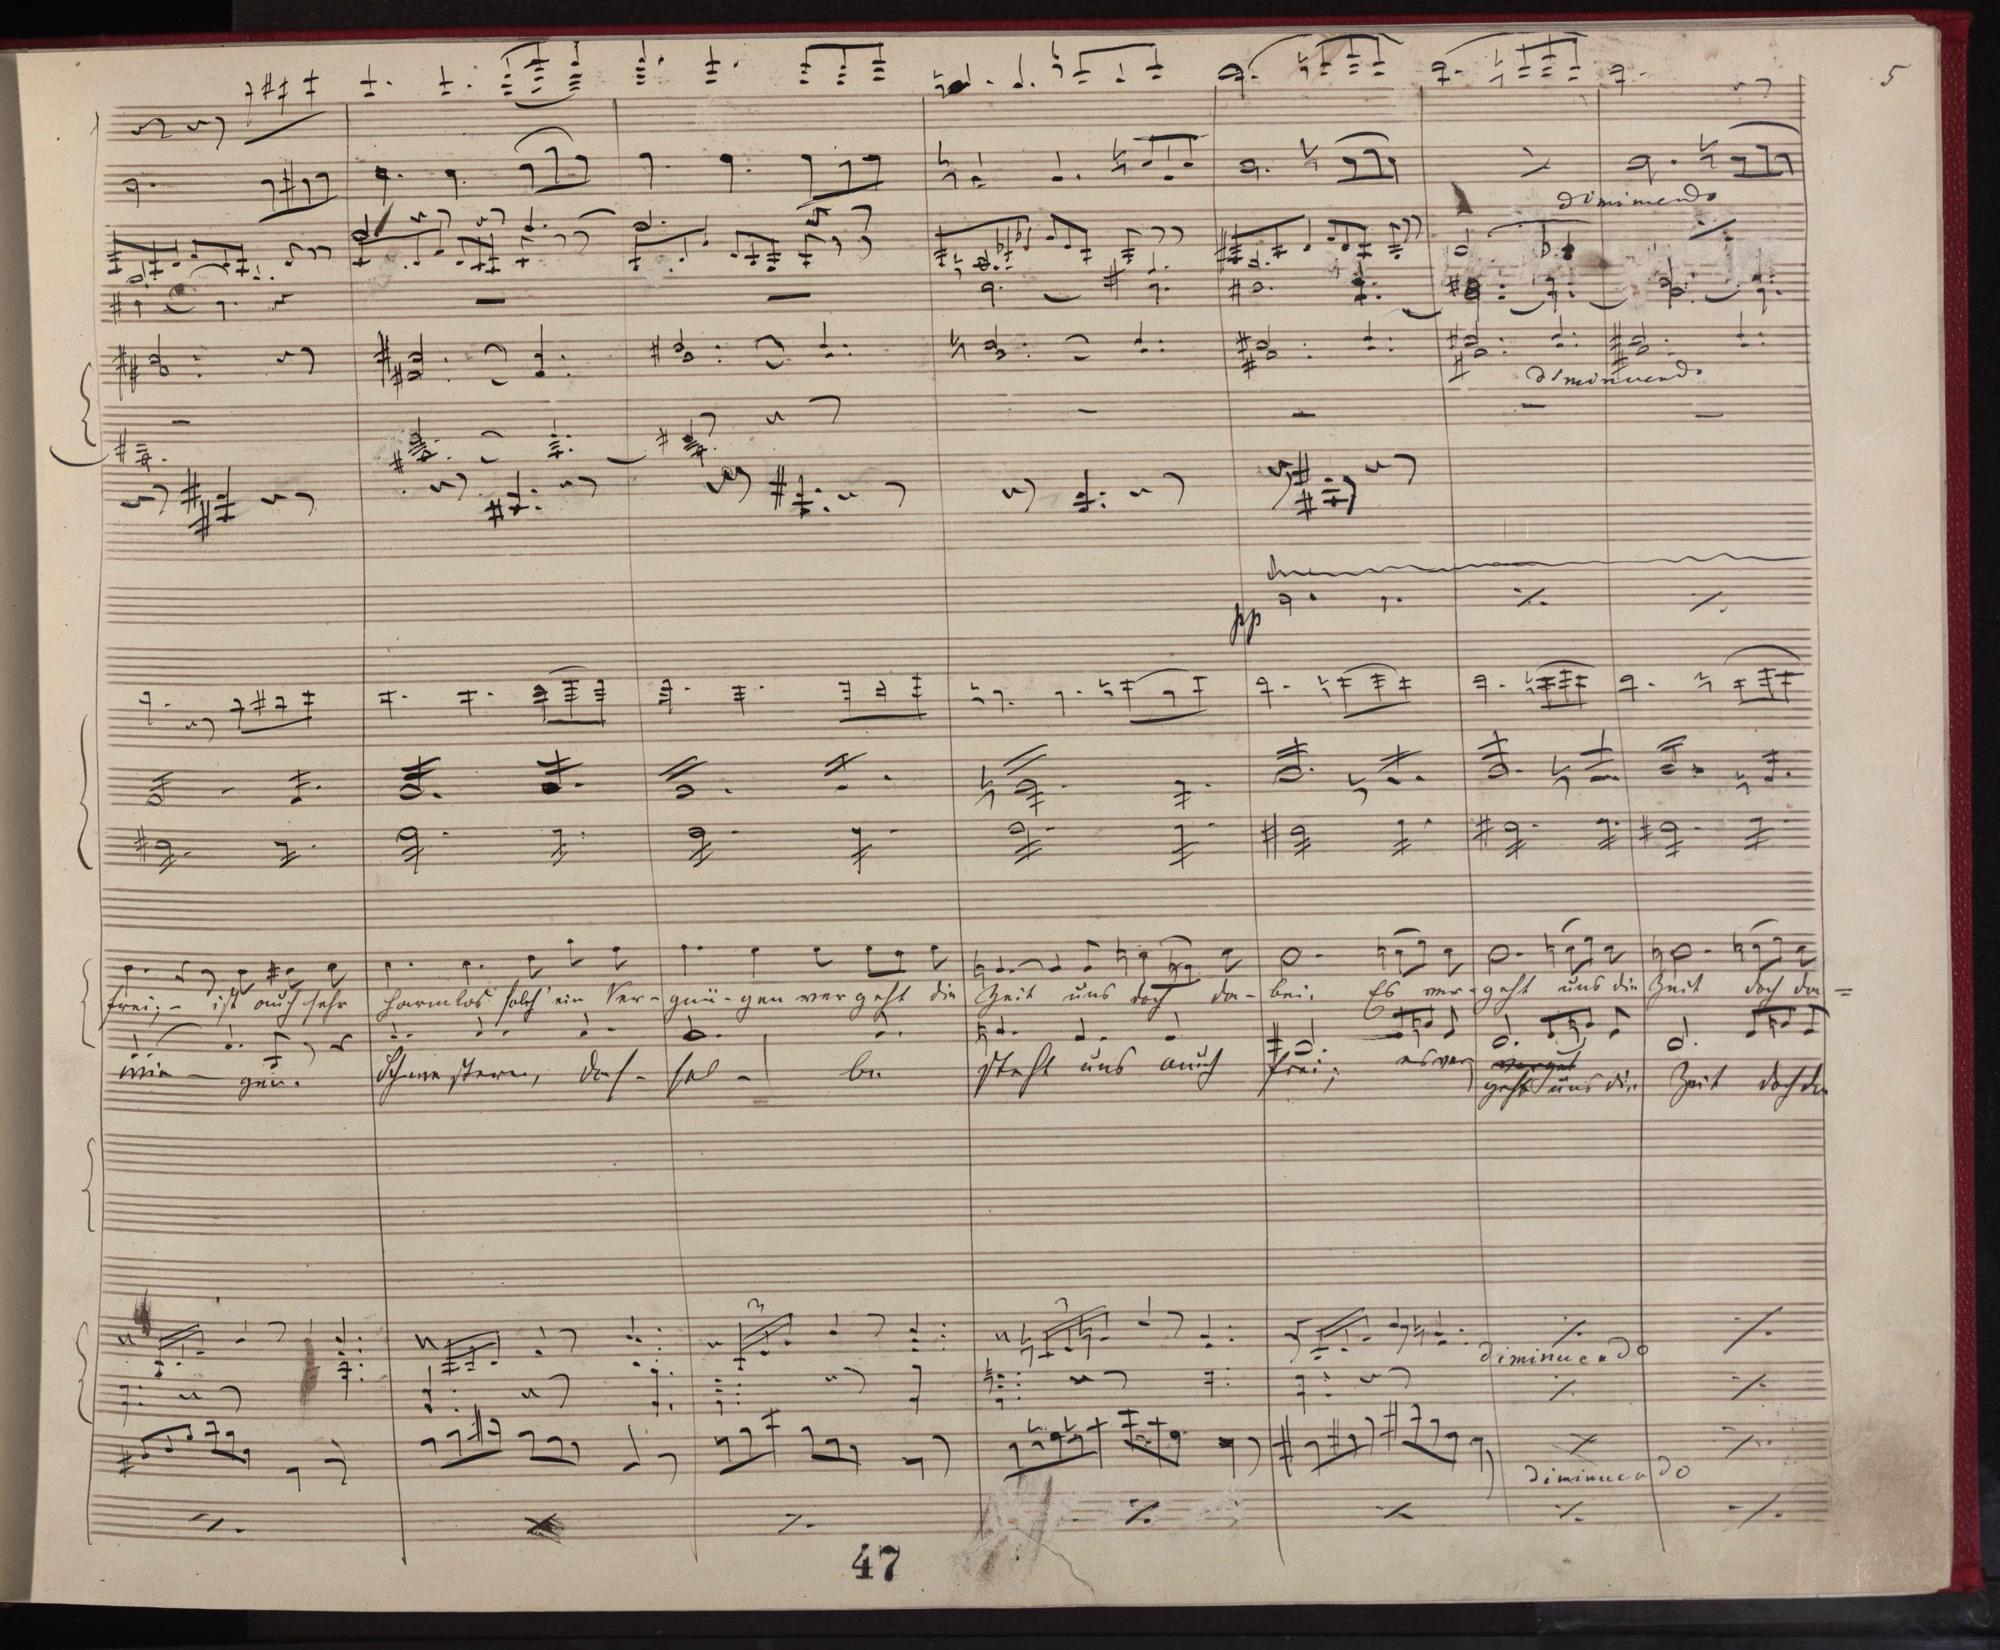 5
diminuendo
diminuendo
pp
frei; - ist auch sehr harmlos solch' ein Ver- gnü- gen vergeht die Zeit uns doch da- bei. Es ver- geht uns die Zeit doch da =
wie - gen. Schwestern, das- sel - be steht uns auch frei; es ver
geht uns die Zeit doch da
3
3
diminuendo
diminuendo
47